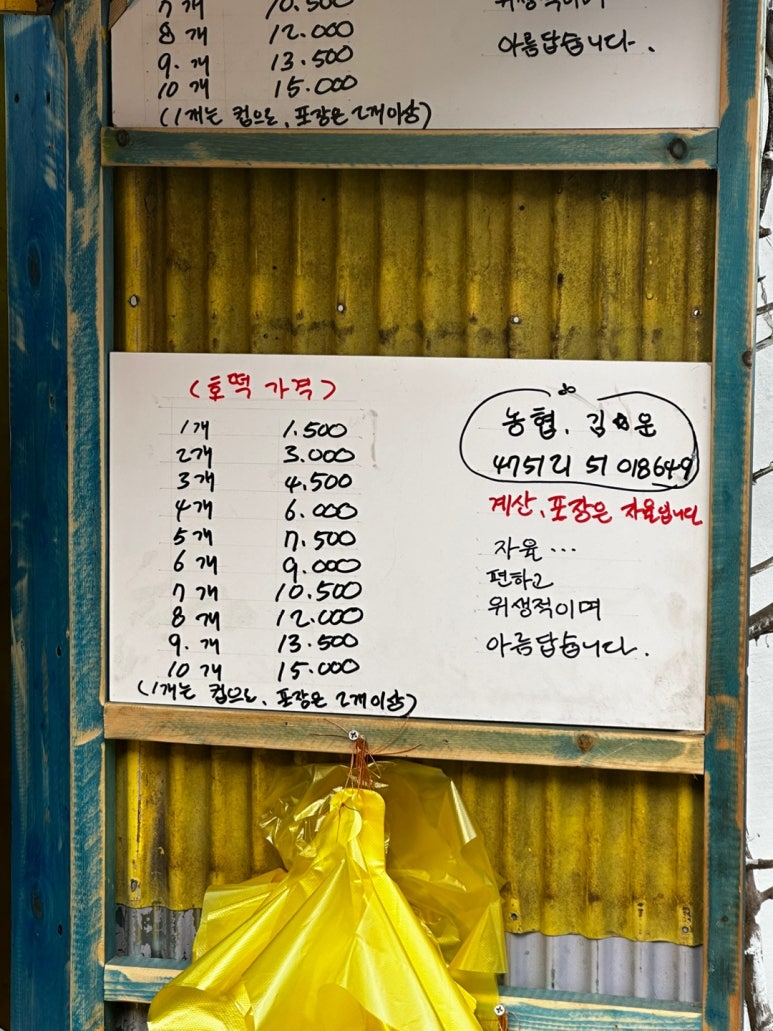 7개 10.500
8개 12.000
9.개 13.500
10개 15.000
(1개는 컵으로, 포장은 2개이상)
위생적이며
아름답습니다.
(호떡 가격)
1개 1.500
2개 3.000
3개 4.500
4개 6.000
5개 7.500
6개 9.000
7개 10.500
8개 12.000
9.개 13.500
10개 15.000
(1개는 컵으로, 포장은 2개이상)
농협. 김 운
475121 51 018649
계산, 포장은 자율입니다
자율...
편하고
위생적이며
아름답습니다.